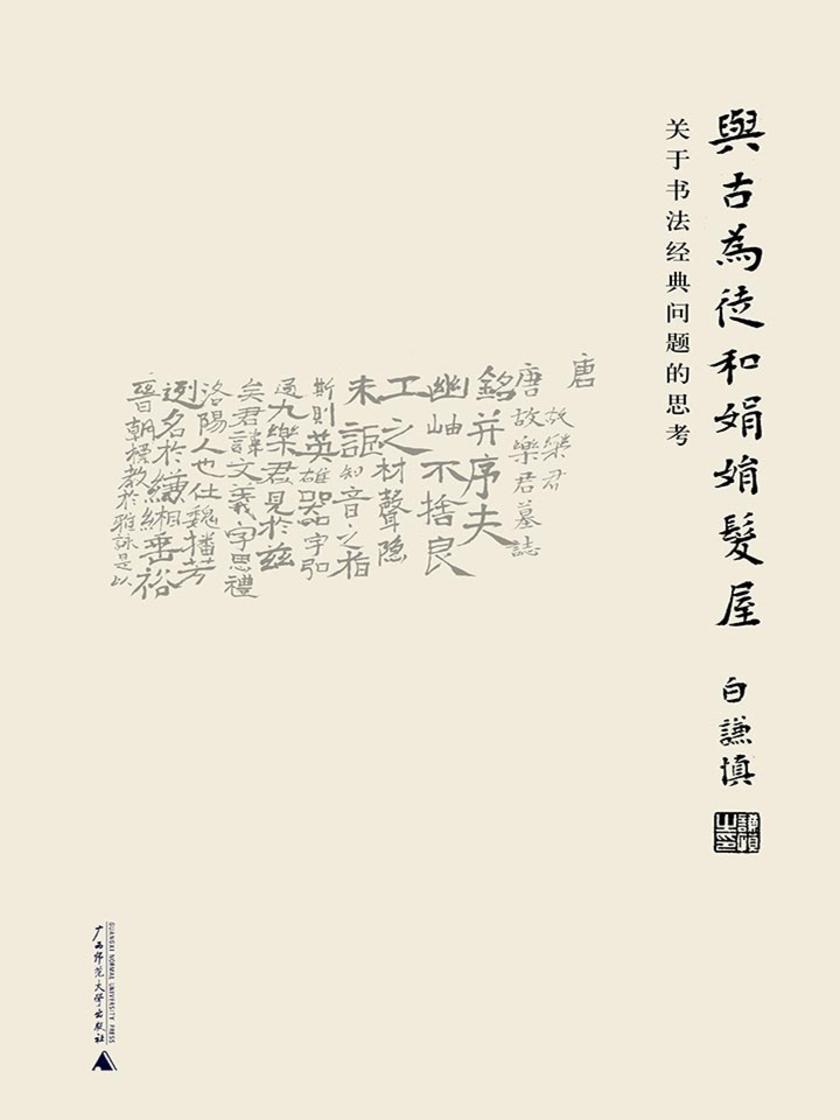 與古為徒和娟娟髮屋
关于书法经典问题的思考
白謙慎
謙慎之印
唐
故樂君
唐故樂君墓誌
銘并序夫
幽岫不捨良
工之材聲隐
未謳知音之指
斯則英雄器宇弘
過九樂君見於兹
矣君諱文義字思禮
洛陽人也仕魏播芳
迾名於縑緗垂裕
晉朝標教於雅詠是以
广西师范大学出版社
GUANGXI NORMAL UNIVERSITY PRESS